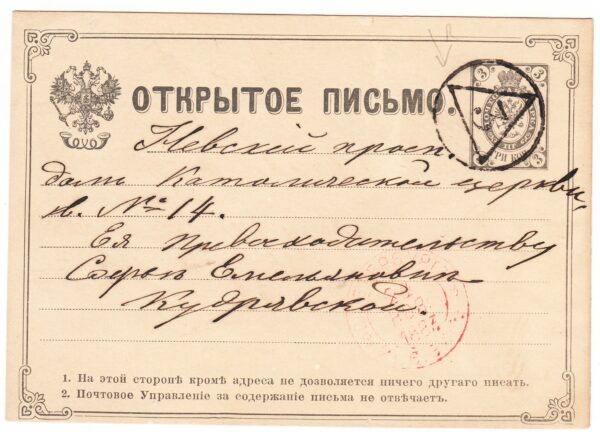 ОТКРЫТОЕ ПИСЬМО.
Невскій просп.
домъ Католической церкви,
кв. № 14.
Ея Превосходительству
Софьѣ Емельяновнѣ
Кудрявской.
1. На этой сторонѣ кромѣ адреса не дозволяется ничего другаго писать.
2. Почтовое Управленіе за содержаніе письма не отвѣчаетъ.